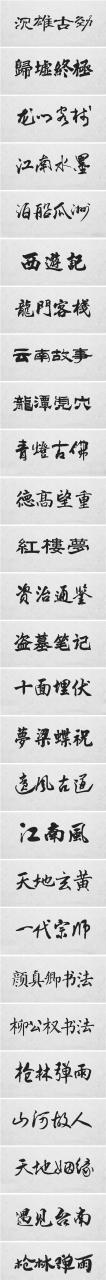 沉雄古勁
歸墟終極
龙门客栈
江南水墨
泊船瓜洲
西遊記
龍門客棧
云南故事
龍潭虎穴
青燈古佛
德高望重
紅樓夢
资治通鉴
盗墓笔记
十面埋伏
夢梁蝶祝
遗風古道
江南風
天地玄黄
一代宗师
颜真卿书法
柳公权书法
枪林弹雨
山河故人
天地姻缘
遇见台南
枪林弹雨